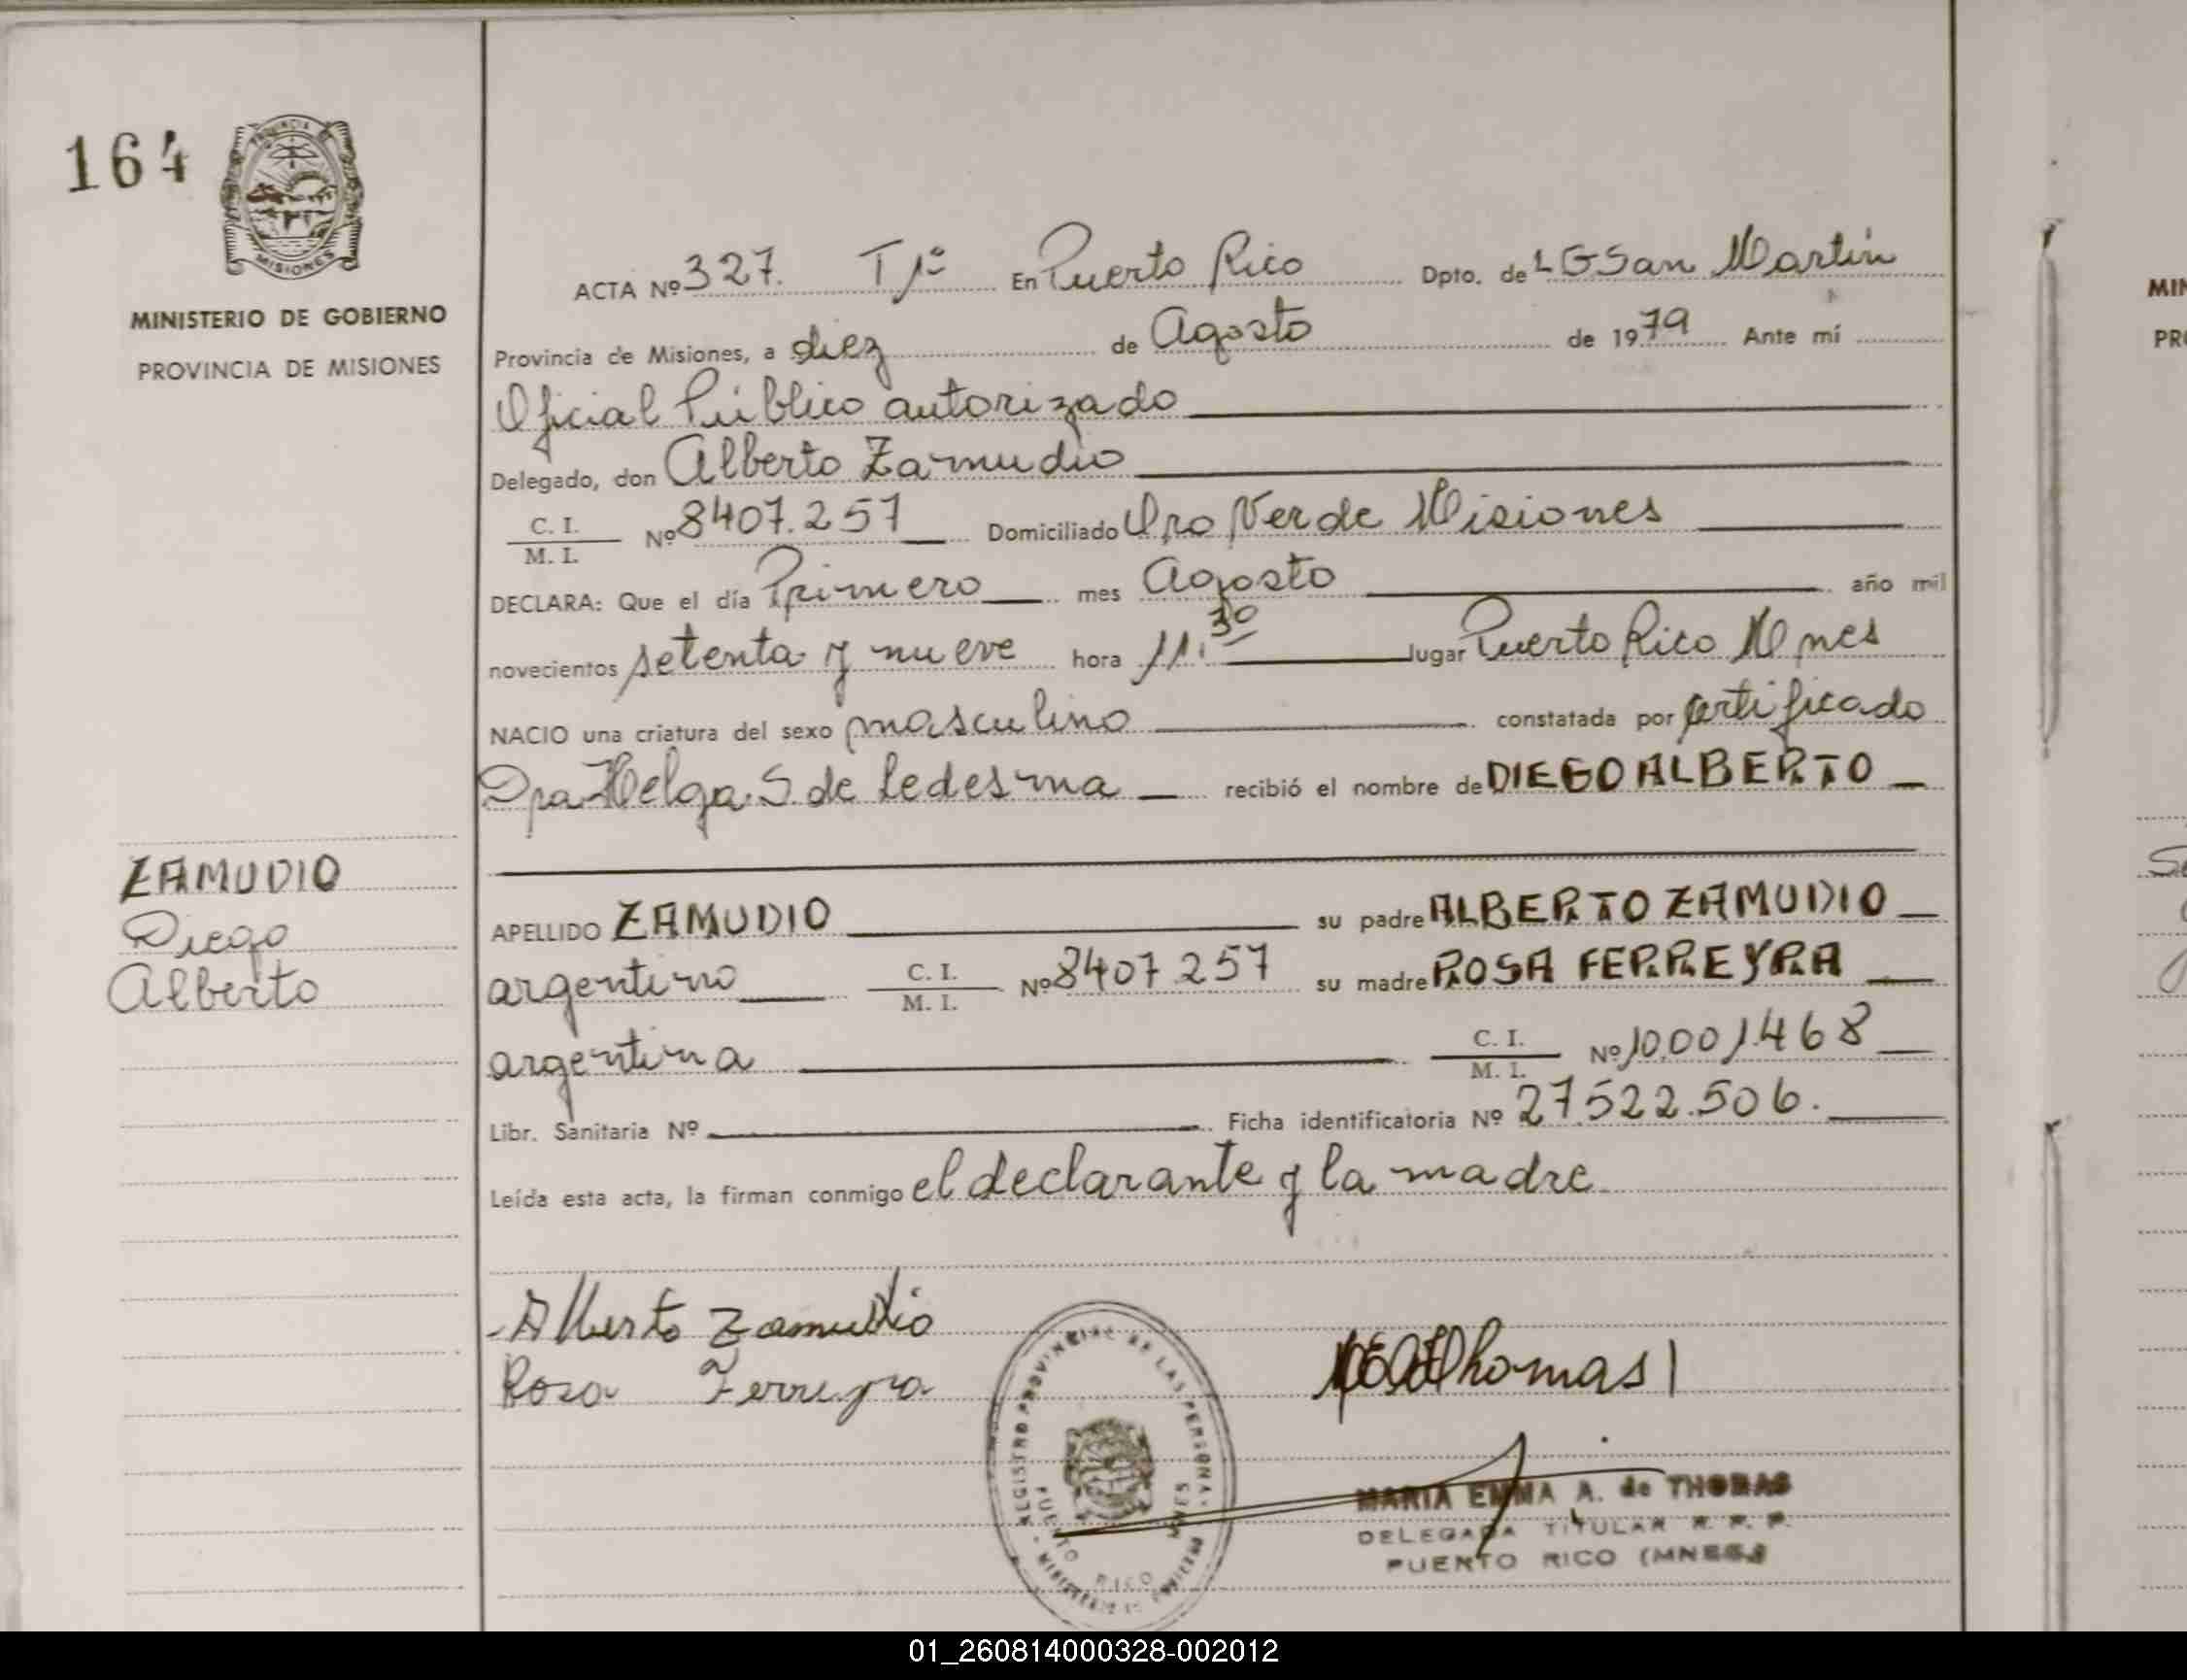 164
PROVINCIA DE
MISIONES
MINISTERIO DE GOBIERNO
PROVINCIA DE MISIONES
ZAMUDIO
Diego
Alberto
ACTA Nº 327. T 1º En Puerto Rico Dpto. de L G San Martín
Provincia de Misiones, a diez de Agosto de 1979 Ante mí
Oficial Público autorizado
Delegado, don Alberto Zamudio
C. I. / M. I. Nº 8407.257 Domiciliado Oro Verde Misiones
DECLARA: Que el día Primero mes Agosto año mil
novecientos setenta y nueve hora 11.30 lugar Puerto Rico Mnes
NACIO una criatura del sexo masculino constatada por certificado
Dra Helga S de Ledesma recibió el nombre de DIEGO ALBERTO
APELLIDO ZAMUDIO su padre ALBERTO ZAMUDIO
argentino C. I. / M. I. Nº 8407.257 su madre ROSA FERREYRA
argentina C. I. / M. I. Nº 10.001.468
Libr. Sanitaria Nº Ficha identificatoria Nº 27.522.506.
Leída esta acta, la firman conmigo el declarante y la madre
Alberto Zamudio
Rosa Ferreyra
Thomas
REGISTRO PROVINCIAL DE LAS PERSONAS
PUERTO RICO MNES
MINISTERIO DE GOBIERNO
MARIA EMMA A. de THOMAS
DELEGADA TITULAR R. P. P.
PUERTO RICO (MNES.)
MIN
PRO
01_260814000328-002012